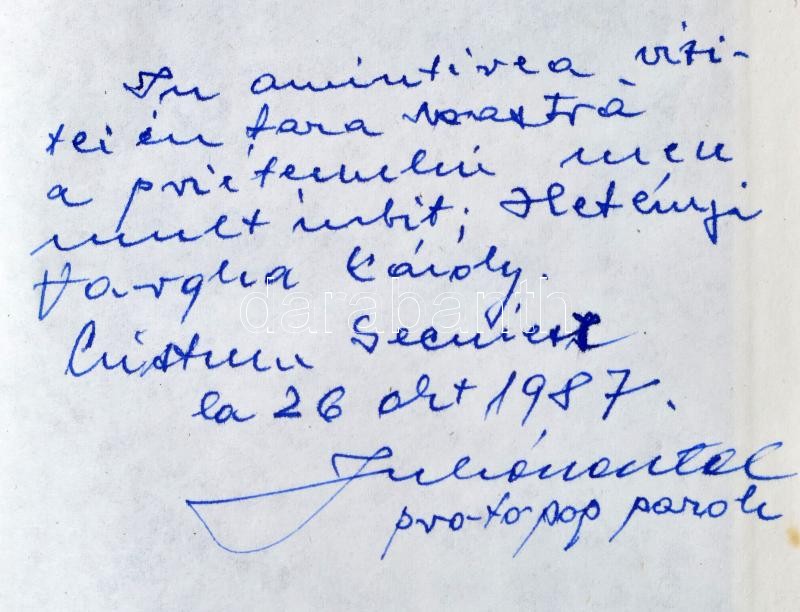 In amintirea vizi-
tei în țara noastră
a prietenului meu
mult iubit, Hetényi
Vargha Károly.
Cristuru Secuiesc
la 26 okt 1987.
protopop paroh
darabanth